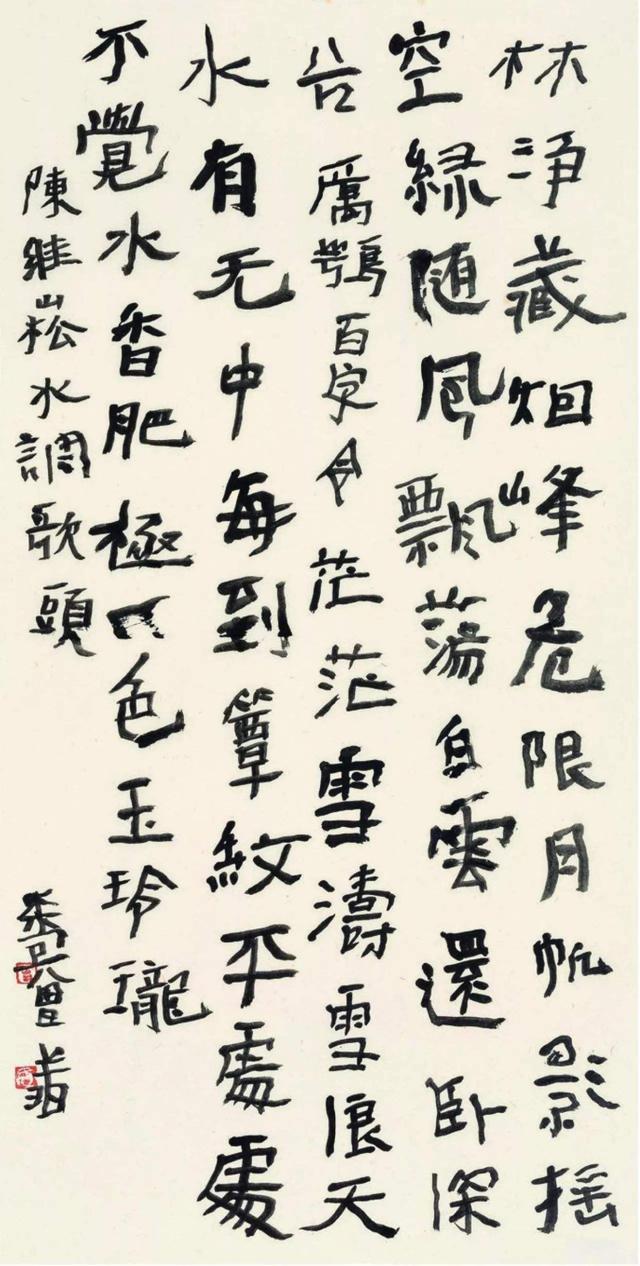 林净藏烟峰危限月帆影摇
空緑随风飄蕩白雲還卧深
谷厲鶚百字令茫茫雪濤雪浪天
水有无中每到簟紋平處處
不覺水香肥極一色玉玲瓏
陳維崧水調歌頭